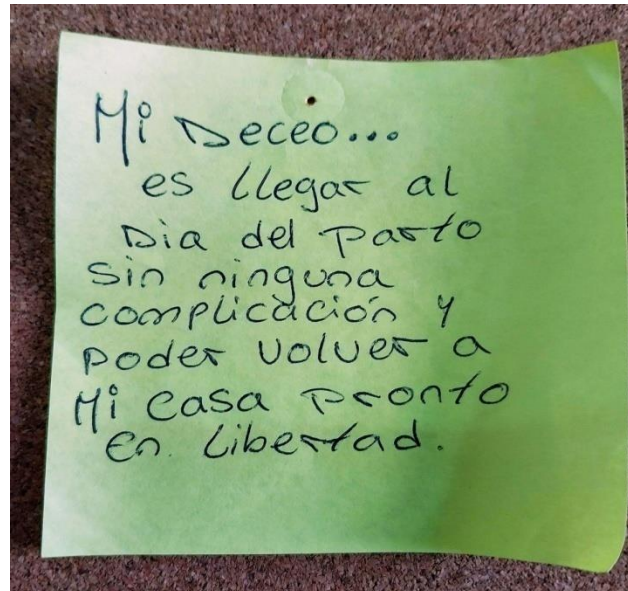 Mi Deceo...
es llegar al
Dia del Parto
sin ninguna
complicación y
poder volver a
Mi casa pronto
en libertad.